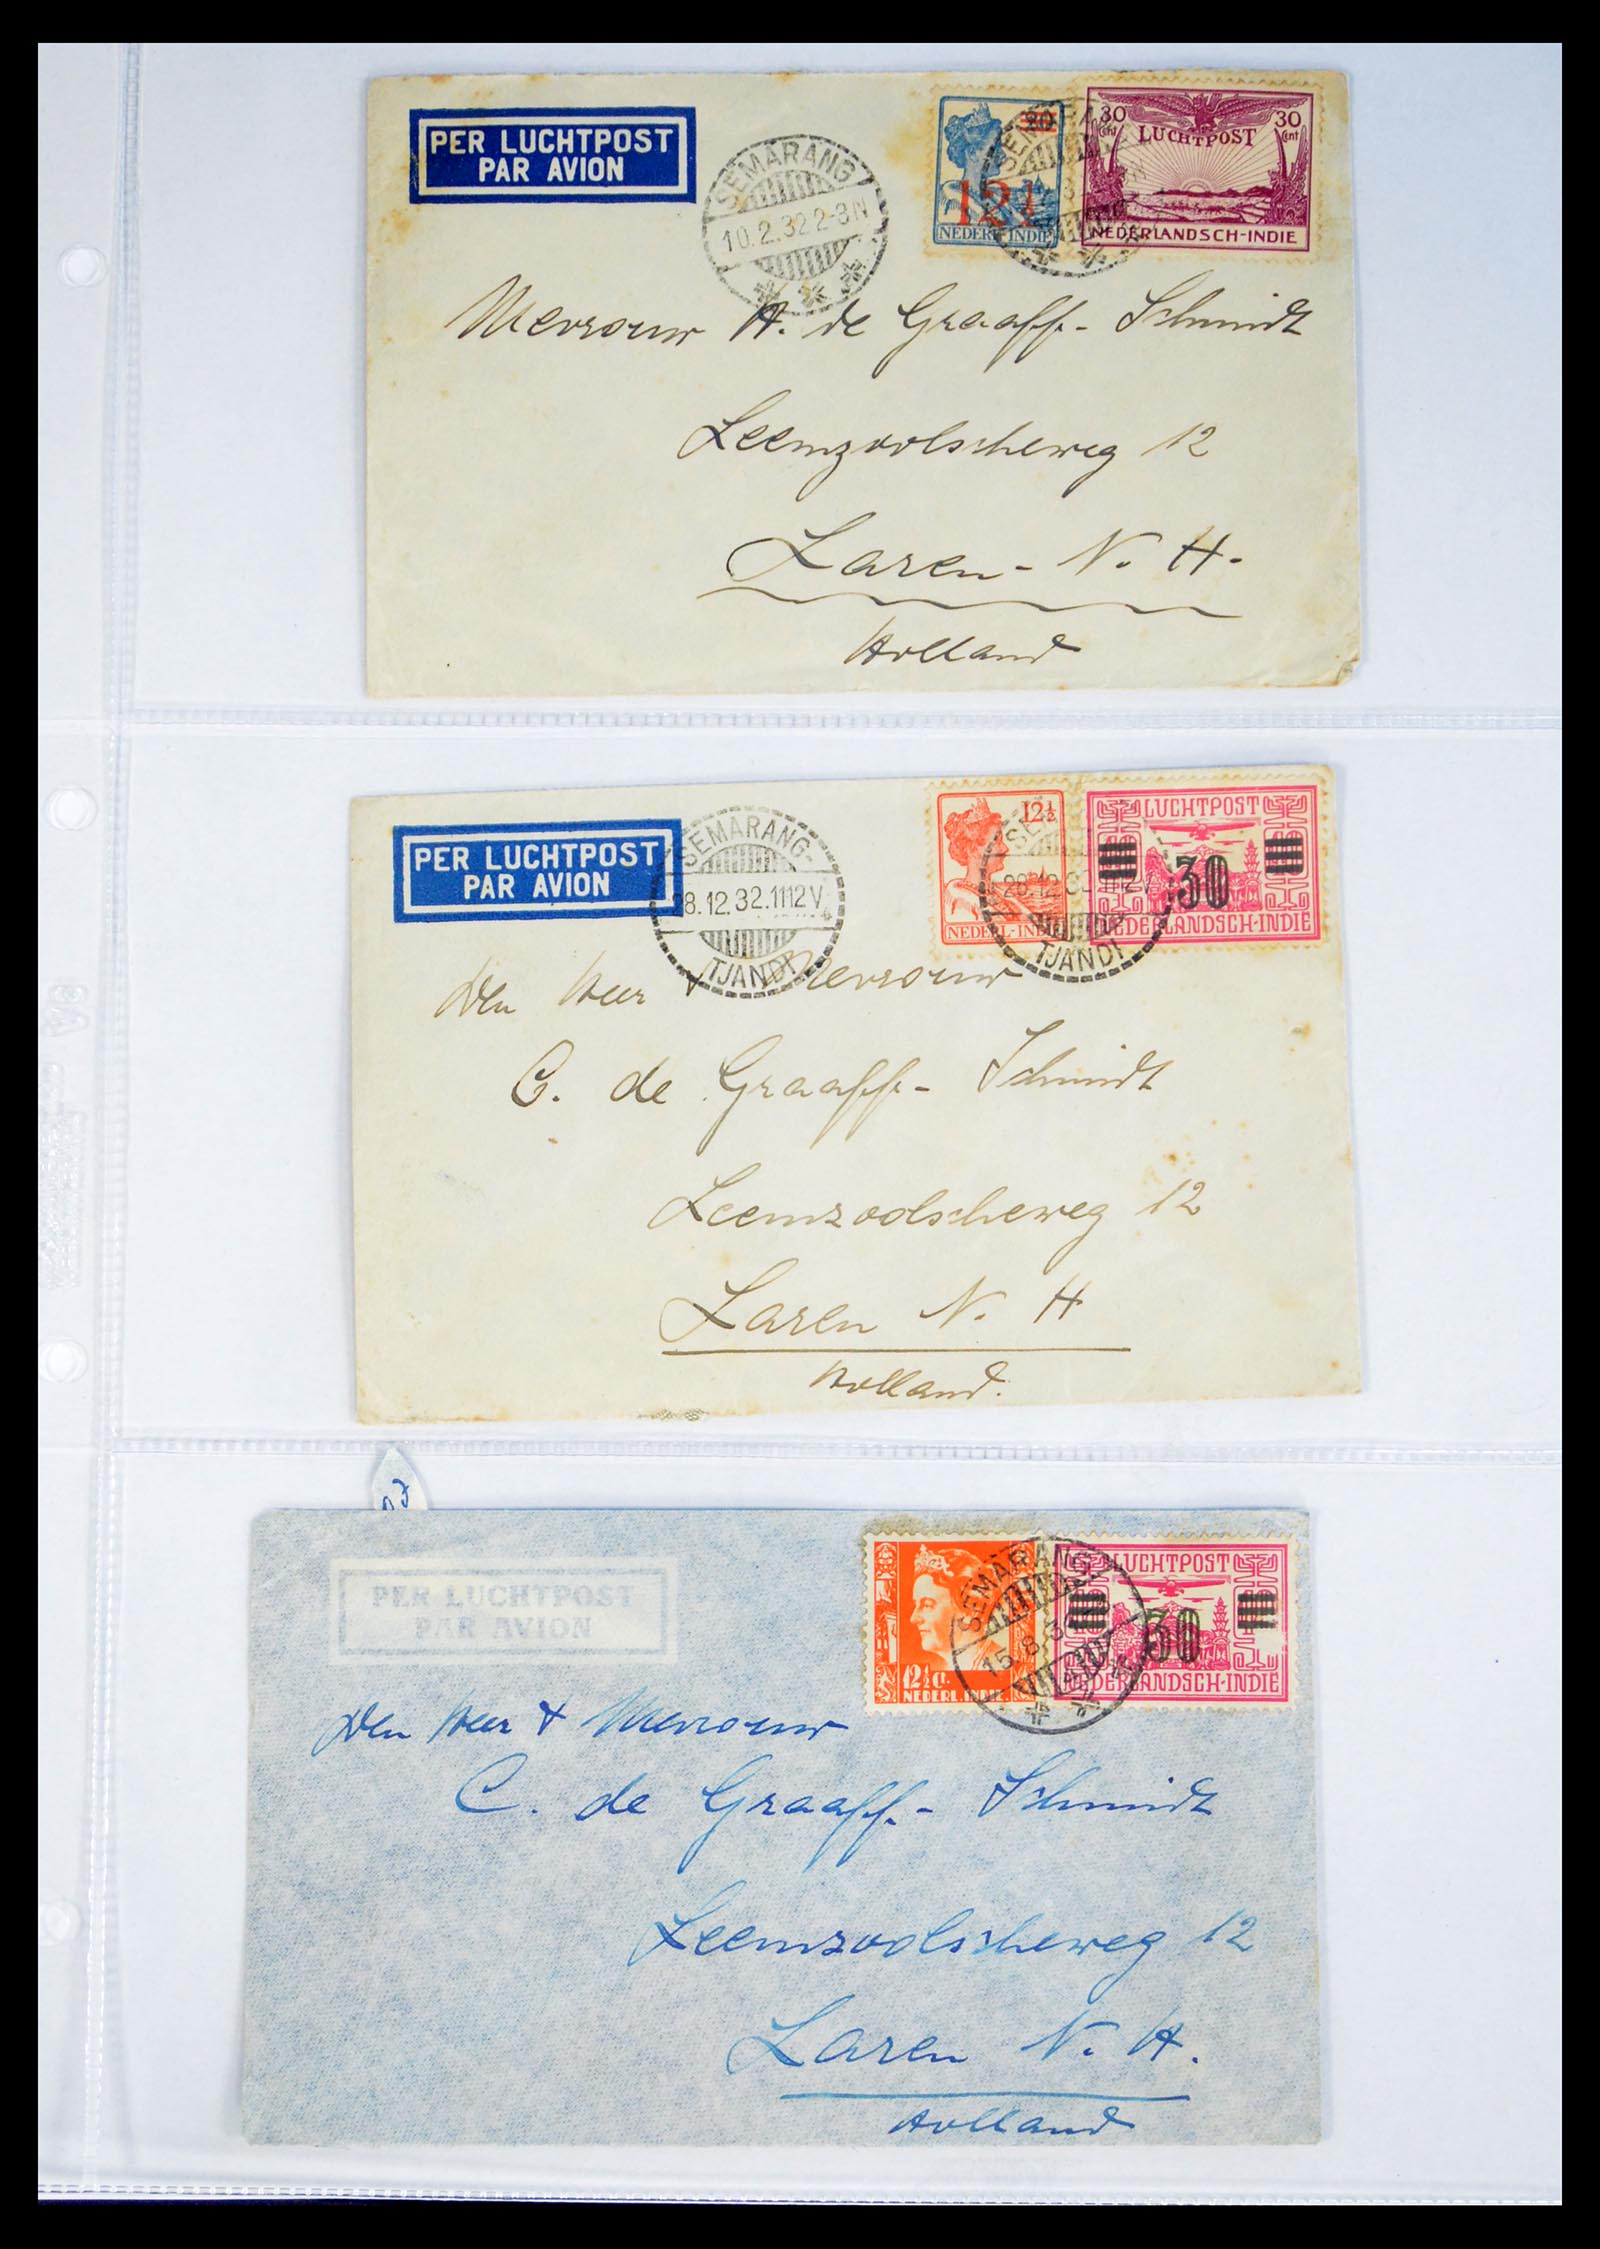 PER LUCHTPOST
PAR AVION
SEMARANG
10.2.32 2-3N
20
12½
NEDERL. INDIE
30 Cent
30 Cent
LUCHTPOST
NEDERLANDSCH-INDIE
SEMARANG
Mevrouw H. de Graaff-Schmidt
Leemzoolscheweg 12
Laren - N. H.
Holland
PER LUCHTPOST
PAR AVION
SEMARANG-
8.12.32.1112V
TJANDI
12½
NEDERL-INDIE
LUCHTPOST
30
NEDERLANDSCH-INDIE
28.12.32.1112V
TJANDI
Den Heer & Mevrouw
C. de Graaff-Schmidt
Leemzoolscheweg 12
Laren N. H
Holland.
PER LUCHTPOST
PAR AVION
12½ c.
NEDERL. INDIE
SEMARANG
15.8.3
LUCHTPOST
30
NEDERLANDSCH-INDIE
Den Heer & Mevrouw
C. de Graaff-Schmidt
Leemzoolscheweg 12
Laren N. H.
Holland